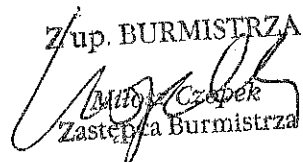 Z up. BURMISTRZA
Miłosz Czopek
Zastępca Burmistrza